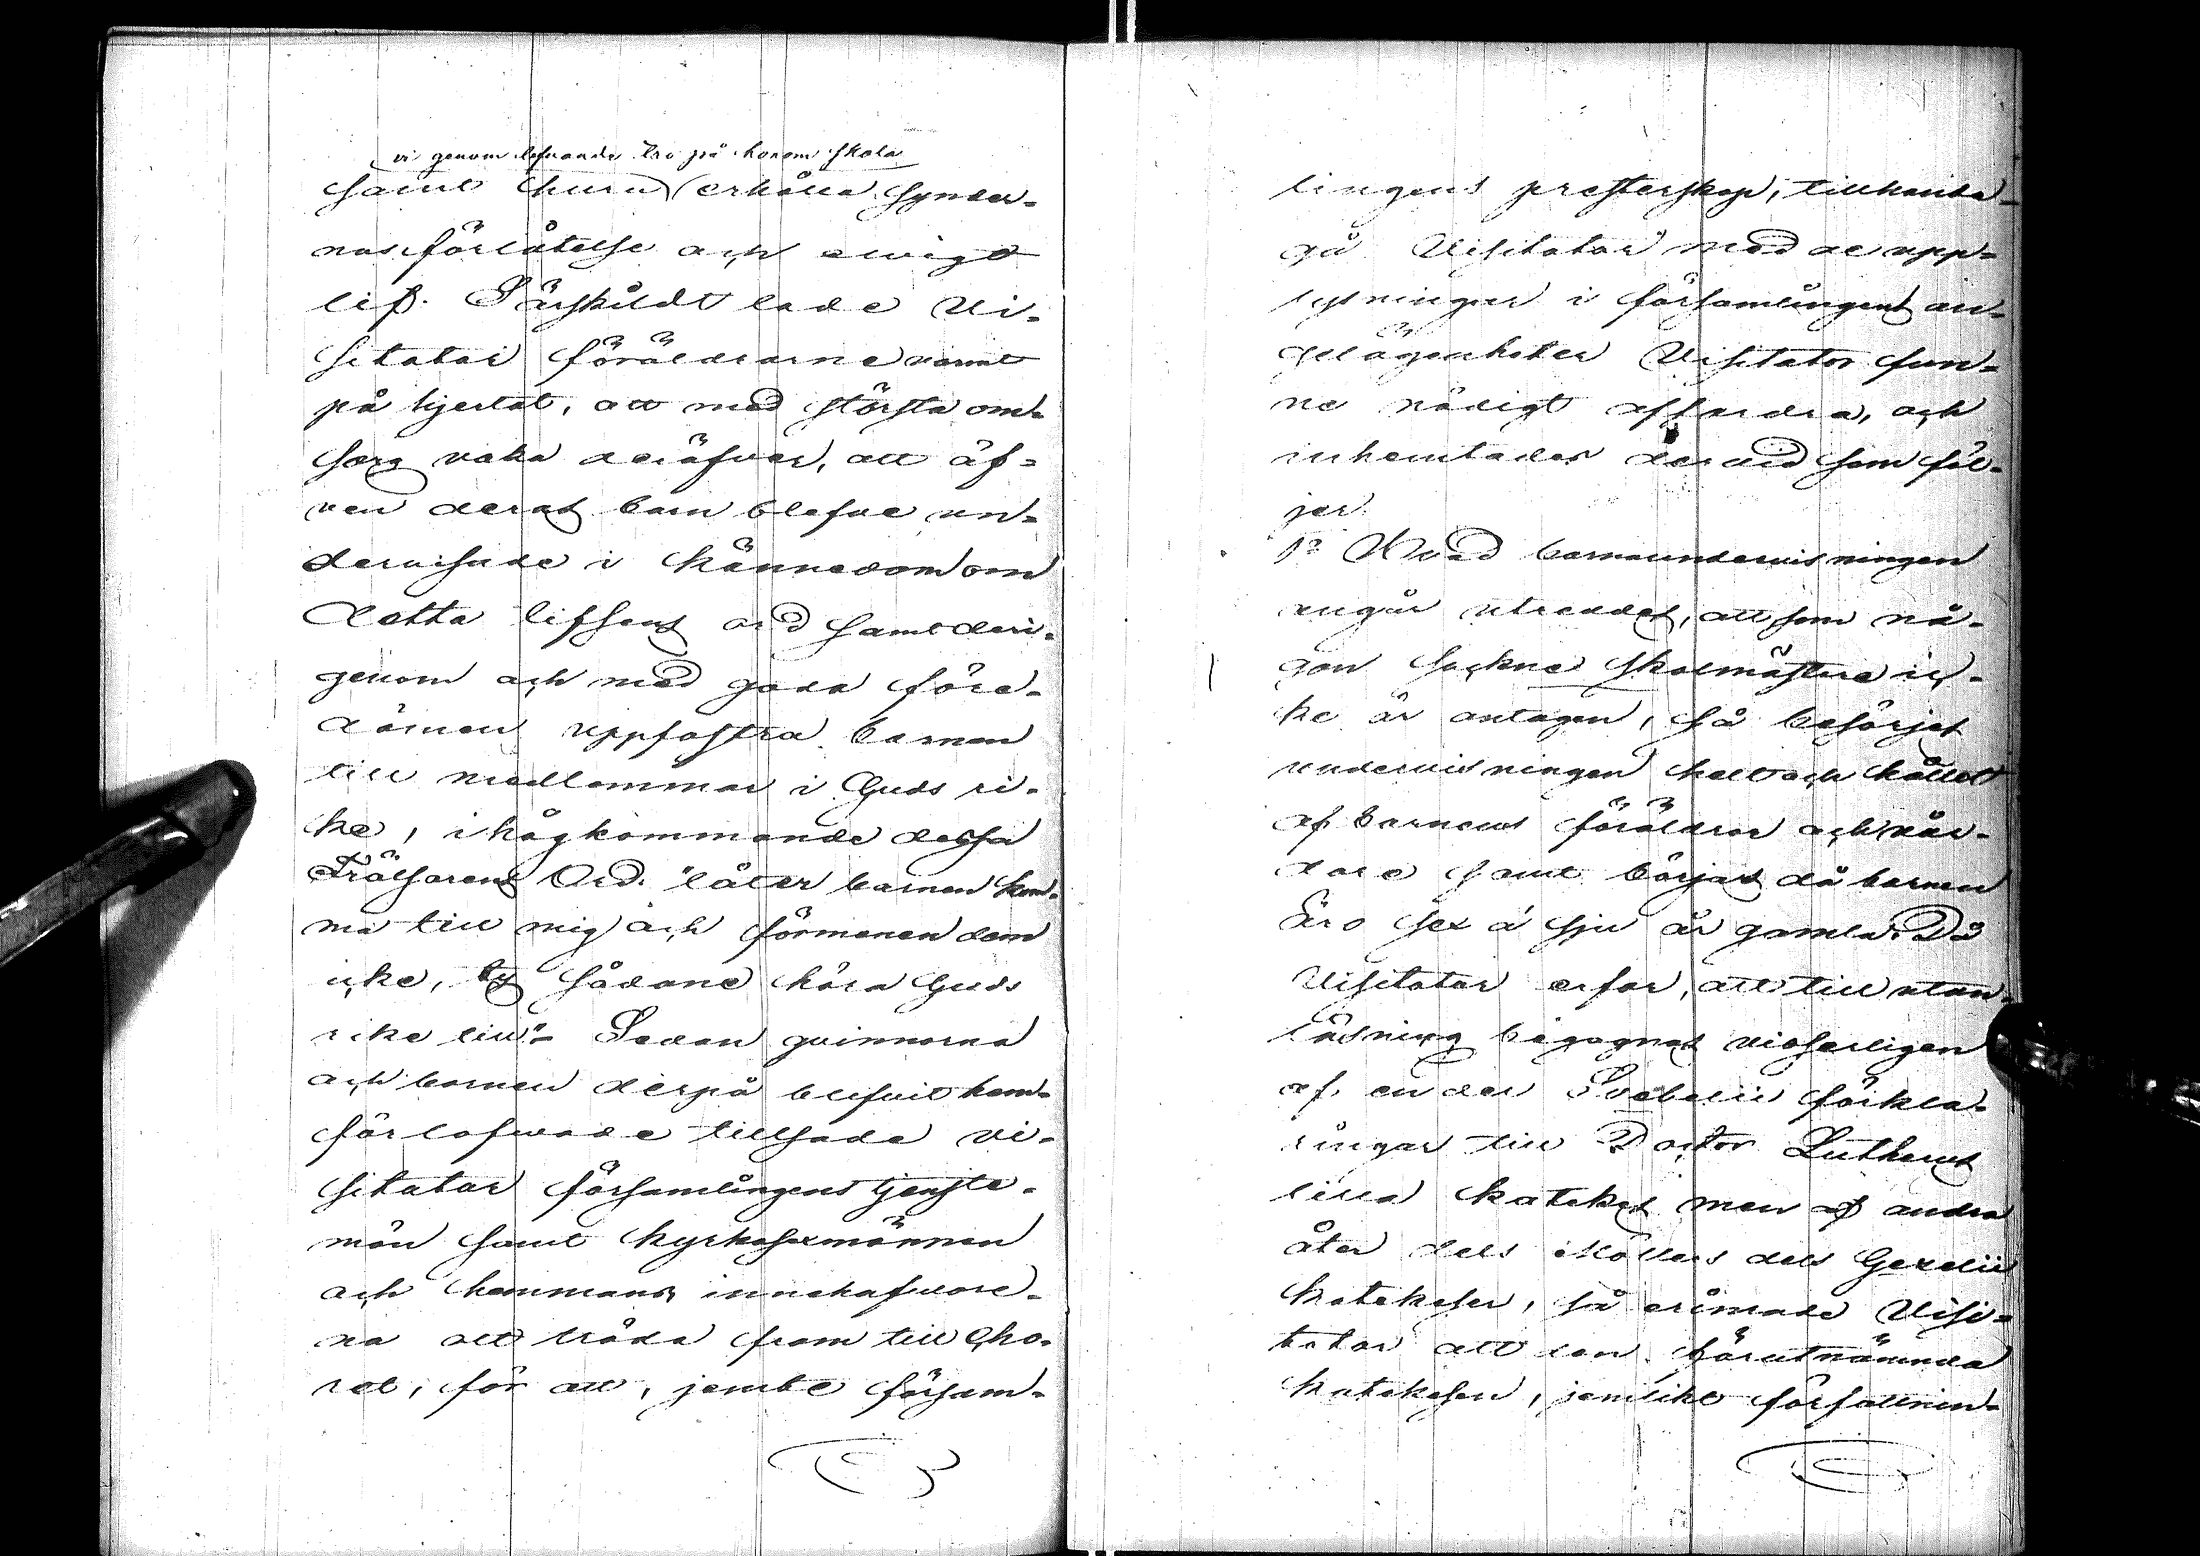 vi genom lefvande tro på honom skola
samt huru erhålla synder-
nas förlåtelse och evigt
lif. Särskildt lade Vi-
sitator föräldrarne varmt
på hjertat, att med största om-
sorg vaka deröfver, att äf-
ven deras barn blefve un-
dervisade i kännedom om
detta lifsens ord samt deri-
genom och med goda före-
dömen uppfostra barnen
till medlemmar i Guds ri-
ke, ihågkommande dessa
Frälsarens Ord: "låter barnen kom-
ma till mig och förmenen dem
icke, ty sådane höra Guds
rike till"- Sedan qvinnorna
och barnen derpå blifvit hem-
förlofvade tillsade Vi-
sitator församlingens tjenste-
män samt kyrkosexmännen
och hemmans innehafvare-
na att träda fram till Cho-
ret, för att, jemte försam-
lingens presterskap, tillhanda-
gå Visitator med de upp-
lysningar i församlingens an-
gelägenheter Visitator fun-
ne nödigt affordra, och
inhemtades dervid som föl-
jer.
1o Hvad barnaundervisningen
angår utreddes, att som nå-
gon sockne skolmästare ic-
ke är antagen, så besörjes
undervisningen helt och hållet
af barnens föräldrar och vår-
dare samt börjas då barnen
äro sex à sju år gamla. Då
Visitator erfor, att till utan-
läsning begagnas vidserligen
af en del Svebelii förkla-
ringar till Doctor Lutheri
lilla katekes men af andra
åter dels Möllers dels Gezelii
katekeser, så erinrade Visi-
tator att den förutnämnda
katekesen, jemlikt författnin-